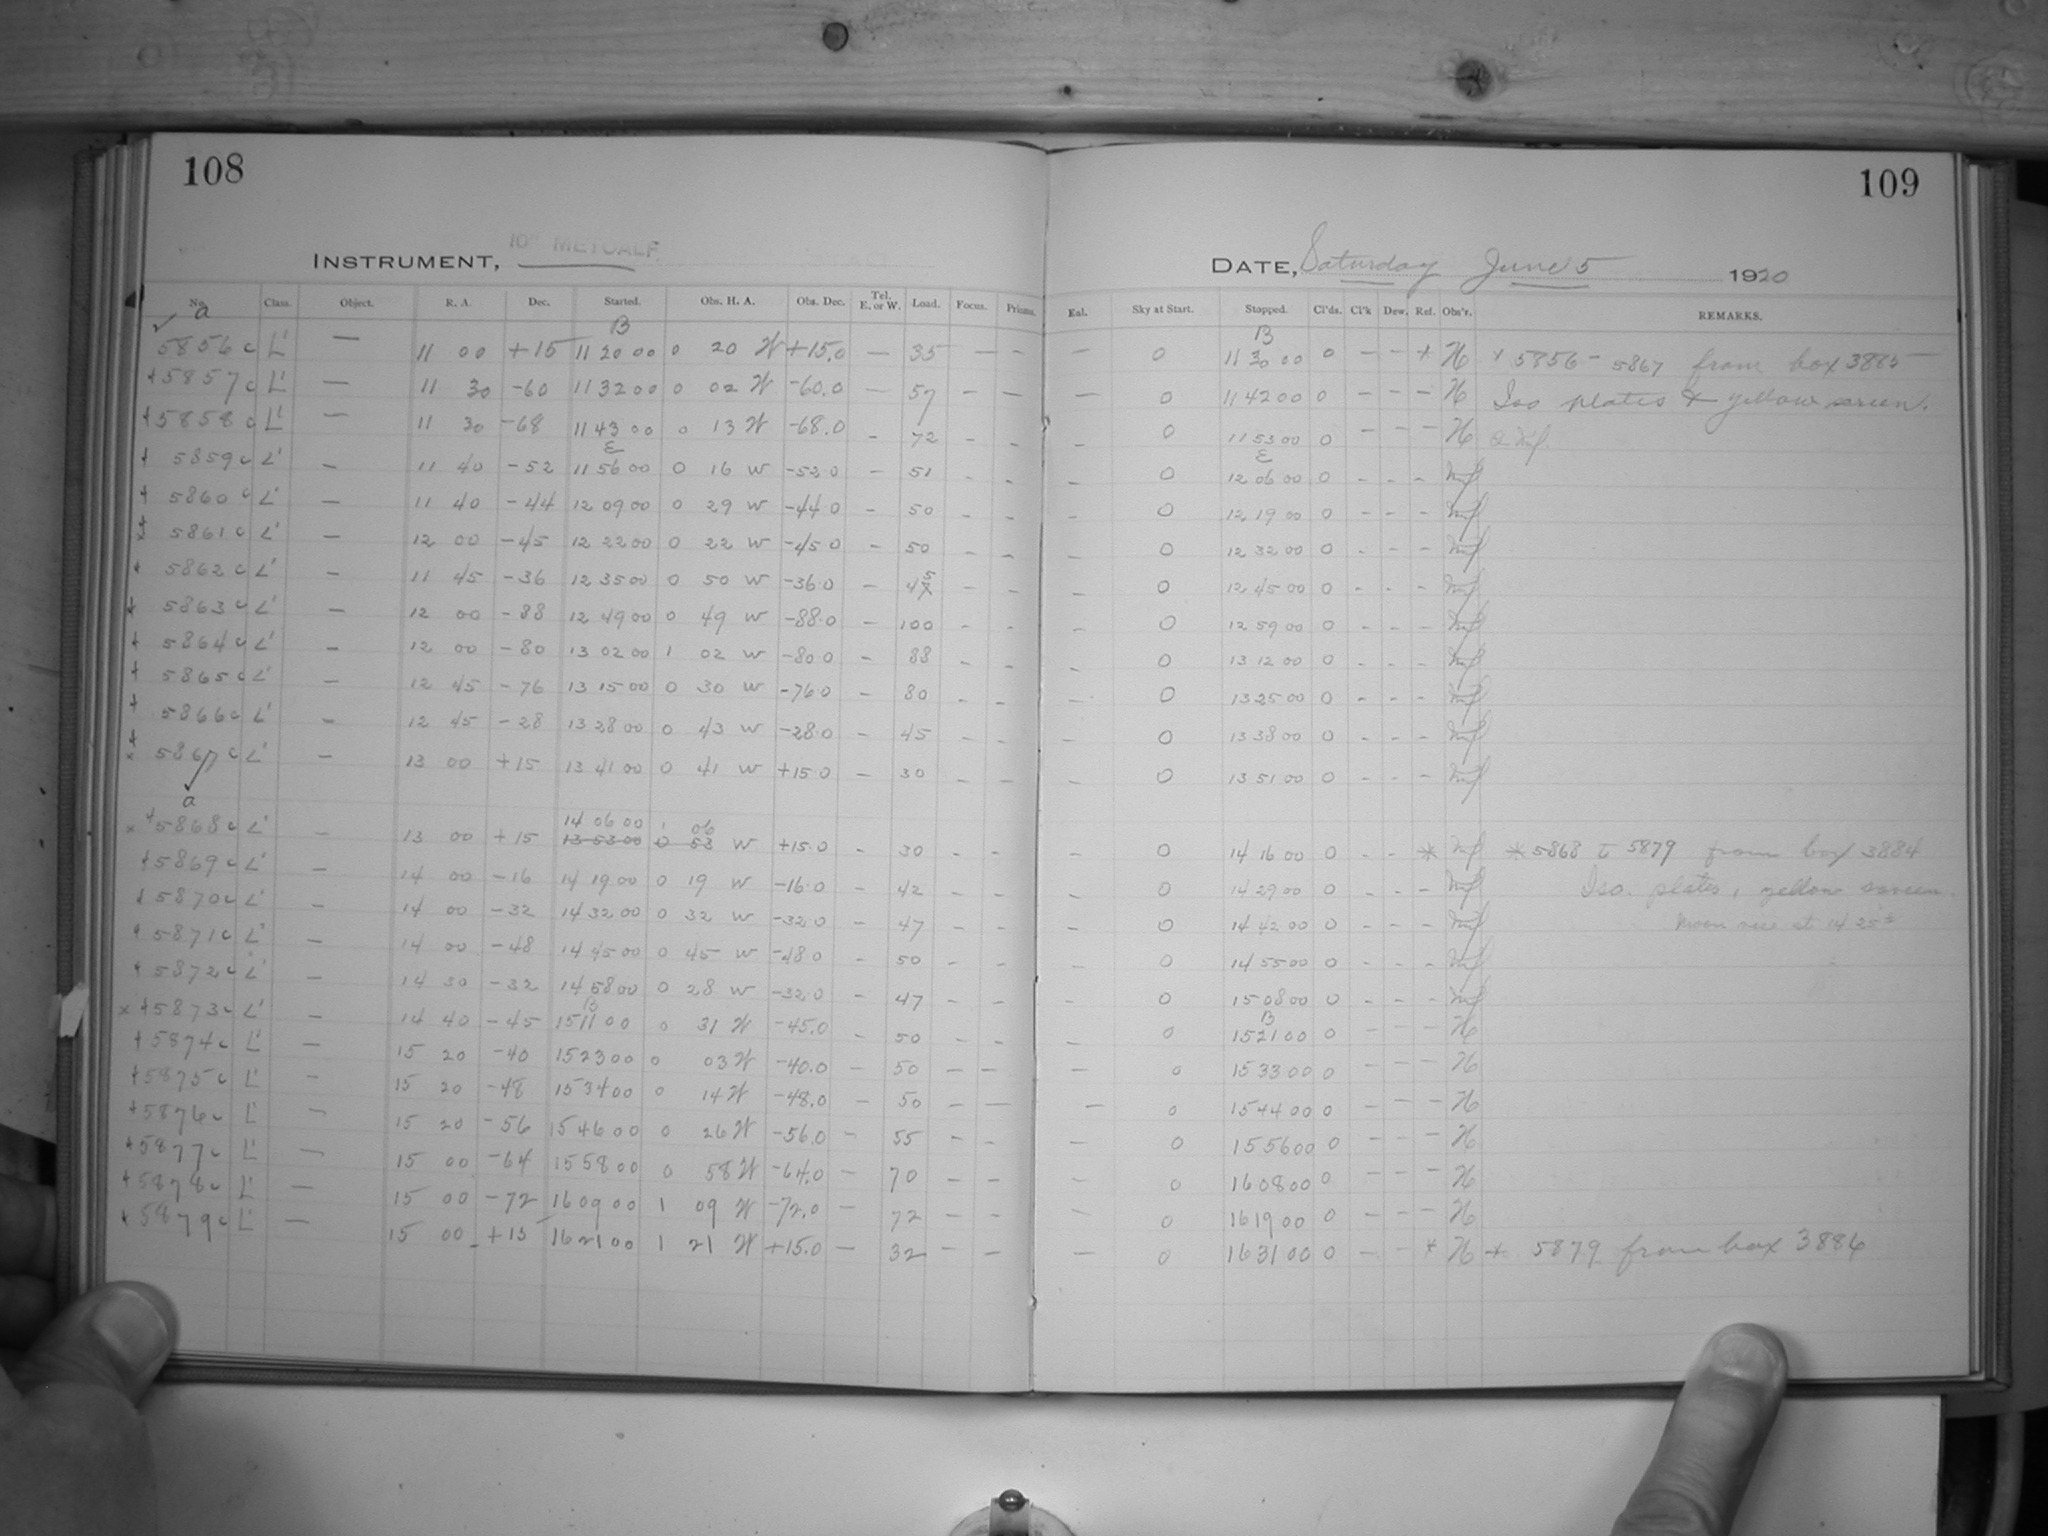 108
109
INSTRUMENT, 10" METCALF.
DATE, Saturday June 5 1920
No. Class. Object. R. A. Dec. Started. Obs. H. A. Obs. Dec. Tel. E. or W. Load. Focus. Prisms. Eal. Sky at Start. Stopped. Cl'ds. Cl'k Dew. Ref. Obs'r. REMARKS.
a B B
5856 c L' — 11 00 +15 11 20 00 0 20 W +15.0 — 35 — — — 0 11 30 00 0 — — + H + 5856 - 5867 from box 3885
+5857 c L' — 11 30 -60 11 32 00 0 02 W -60.0 — 57 — — — 0 11 42 00 0 — — — H Iso plates & yellow screen.
+5858 c L' — 11 30 -68 11 43 00 0 13 W -68.0 — 72 — — — 0 11 53 00 0 — — — H
E E
+ 5859 c L' — 11 40 -52 11 56 00 0 16 W -52.0 — 51 - - - 0 12 06 00 0 - - -
+ 5860 c L' — 11 40 -44 12 09 00 0 29 W -44 0 - 50 - - - 0 12 19 00 0 - - -
5861 c L' — 12 00 -45 12 22 00 0 22 W -45 0 - 50 - - - 0 12 32 00 0 - - -
+ 5862 c L' — 11 45 -36 12 35 00 0 50 W -36.0 - 45 - - - 0 12 45 00 0 - - -
+ 5863 c L' — 12 00 -88 12 49 00 0 49 W -88.0 - 100 - - - 0 12 59 00 0 - - -
+ 5864 c L' — 12 00 -80 13 02 00 1 02 W -80 0 - 88 - - - 0 13 12 00 0 - - -
+ 5865 c L' — 12 45 -76 13 15 00 0 30 W -76.0 - 80 - - - 0 13 25 00 0 - - -
+ 5866 c L' — 12 45 -28 13 28 00 0 43 W -28.0 - 45 - - - 0 13 38 00 0 - - -
5867 c L' — 13 00 +15 13 41 00 0 41 W +15 0 - 30 - - - 0 13 51 00 0 - - -
a 14 06 00 1 06
x +5868 c L' — 13 00 +15 13 53 00 0 53 W +15.0 - 30 - - - 0 14 16 00 0 - - * * 5868 to 5879 from box 3884
+5869 c L' — 14 00 -16 14 19 00 0 19 W -16.0 - 42 - - - 0 14 29 00 0 - - - Iso. plates, yellow screen.
+5870 c L' — 14 00 -32 14 32 00 0 32 W -32.0 - 47 - - - 0 14 42 00 0 - - - Moon rise at 14 25±
+5871 c L' — 14 00 -48 14 45 00 0 45 W -48 0 - 50 - - - 0 14 55 00 0 - - -
+5872 c L' — 14 30 -32 14 58 00 0 28 W -32.0 - 47 - - - 0 15 08 00 0 - - -
B B
x +5873 c L' — 14 40 -45 15 11 00 0 31 W -45.0 - 50 - - - 0 15 21 00 0 - - - H
+5874 c L' — 15 20 -40 15 23 00 0 03 W -40.0 - 50 - - - 0 15 33 00 0 - - - H
+5875 c L' — 15 20 -48 15 34 00 0 14 W -48.0 - 50 - — — 0 15 44 00 0 - - - H
+5876 c L' — 15 20 -56 15 46 00 0 26 W -56.0 - 55 - - - 0 15 56 00 0 - - - H
+5877 c L' — 15 00 -64 15 58 00 0 58 W -64.0 - 70 - - - 0 16 08 00 0 - - - H
+5878 c L' — 15 00 -72 16 09 00 1 09 W -72.0 - 72 - - - 0 16 19 00 0 - - - H
+ 5879 c L' — 15 00 +15 16 21 00 1 21 W +15.0 - 32 - - - 0 16 31 00 0 - - + H + 5879 from box 3886